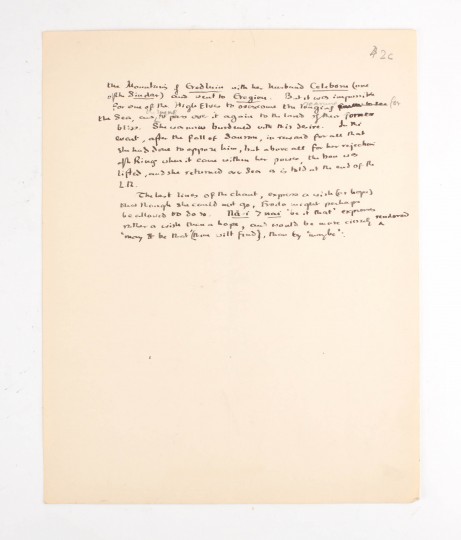 2c
the Mountains of Eredluin with her husband Celeborn (one
of the Sindar) and went to Eregion. But it was impossible
for one of the High Elves to overcome the longing for
the Sea, and to pass over it again to the land of their former
bliss. She was now burdened with this desire. In the
event, after the fall of Sauron, in reward for all that
she had done to oppose him, but above all for her rejection
of the Ring when it came within her power, the ban was
lifted, and she returned over Sea as is told at the end of the
LR.
The last lines of the chant, express a wish (or hope)
that though she could not go, Frodo might perhaps
be allowed to do so. Ná-i > nai 'be it that' expresses
rather a wish than a hope, and would be more closely rendered
'may it be that' (thou wilt find), than by 'maybe'.